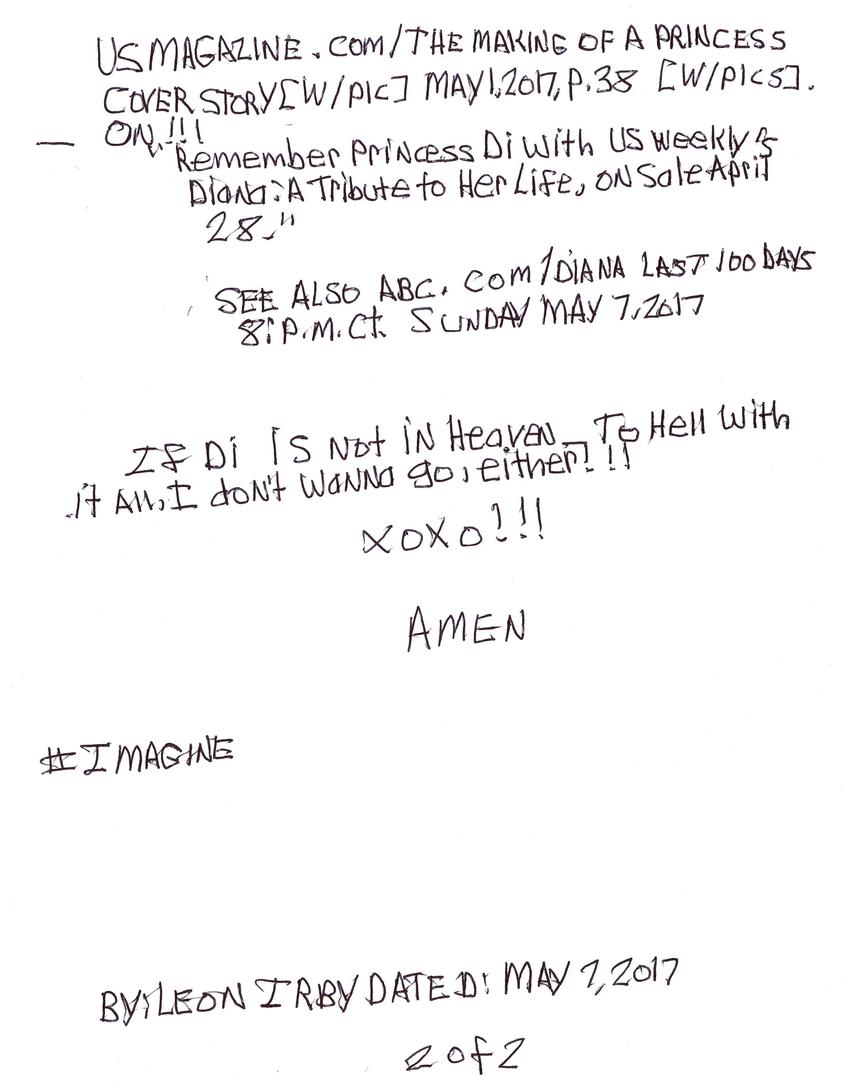 US MAGAZINE.COM/THE MAKING OF A PRINCESS
COVER STORY [W/PIC] MAY 1, 2017, P.38 [W/PICS].
— ON!!!
"Remember Princess Di with US Weekly's
Diana: A Tribute to Her Life, on sale April
28."
SEE ALSO ABC.COM/DIANA LAST 100 DAYS
8: P.M. Ct. SUNDAY MAY 7, 2017
If Di is Not in Heaven — To Hell with
it All, I don't wanna go, either!!!
XOXO!!!
AMEN
#IMAGINE
BY: LEON IRBY DATED: MAY 7, 2017
2 of 2